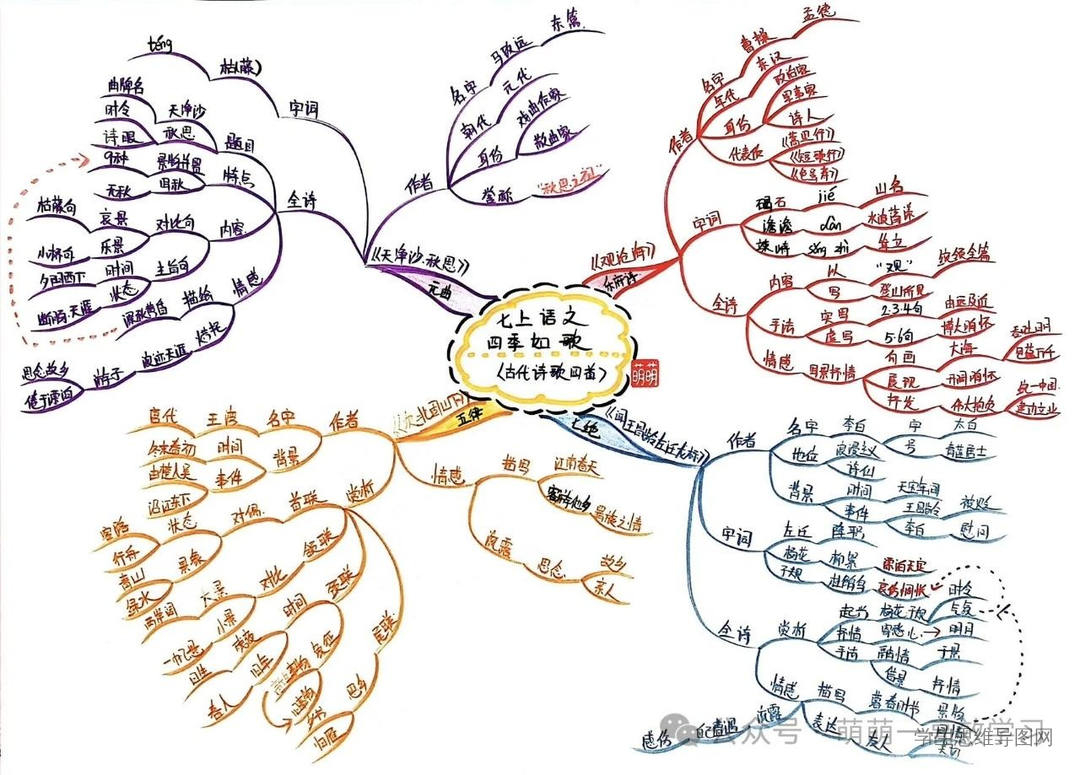 七上语文
四季如歌
(古代诗歌四首)
萌萌
《观沧海》
乐府诗
作者
名字
曹操
孟德
年代
东汉
身份
政治家
军事家
诗人
代表作
《蒿里行》
《短歌行》
《龟虽寿》
字词
碣石
jié
山名
澹澹
dàn
水波荡漾
竦峙
sǒng zhì
耸立
全诗
内容
以
"观"
统领全篇
写
登山所见
手法
实写
2·3·4句
由远及近
虚写
5·6句
博大胸怀
情感
借景抒情
勾画
大海
吞吐日月
包蕴万千
展现
开阔胸怀
抒发
伟大抱负
统一中国
建功立业
《闻王昌龄左迁龙标》
七绝
作者
名字
李白
字
太白
号
青莲居士
地位
浪漫主义
诗仙
背景
时间
天宝年间
事件
王昌龄
被贬
李白
慰问
字词
左迁
降职
杨花
柳絮
漂泊无定
子规
杜鹃鸟
哀伤惆怅
全诗
赏析
起兴
杨花子规
时令
点题
抒情
寄愁心
明月
手法
融情
于景
借景
抒情
情感
描写
暮春时节
景物
表达
友人
同情
关切
流露
自己遭遇
感伤
《次北固山下》
五律
作者
名字
王湾
唐代
背景
时间
冬末春初
事件
由楚入吴
沿江东下
情感
描写
江南春天
客旅他乡
羁旅之情
流露
思念
故乡
亲人
赏析
首联
对偶
状态
客路
行舟
景象
青山
绿水
颔联
对比
大景
两岸阔
小景
一帆悬
颈联
时间
残夜
日生
旧年
春入
尾联
思乡
乡书
归雁
《天净沙·秋思》
元曲
作者
名字
马致远
东篱
朝代
元代
身份
戏曲作家
散曲家
誉称
"秋思之祖"
字词
枯(藤)
téng
全诗
题目
天净沙
曲牌名
秋思
时令
诗眼
特点
景物并置
9种
因秋
无秋
内容
对比句
哀景
枯藤句
乐景
小桥句
主旨句
时间
夕阳西下
状态
断肠天涯
情感
描绘
深秋黄昏
烤托
浪迹天涯
游子
思念故乡
倦于漂泊
公众号·萌萌一起学习
学生思维导图网